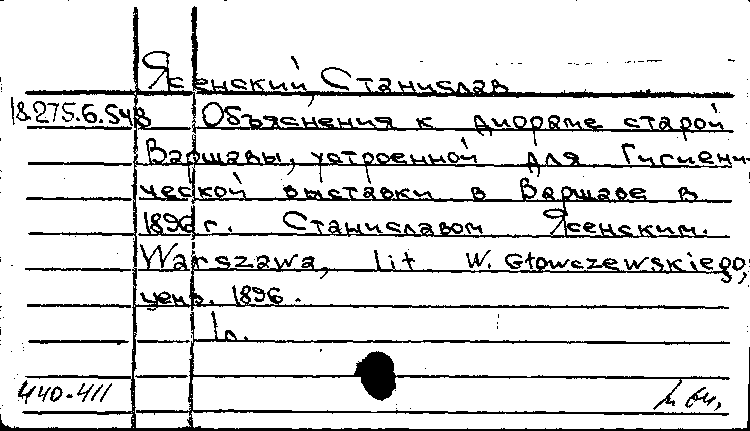 Ясенский, Станислав
18.275.6.548 Объяснения к диораме старой
Варшавы, устроенной для Гигиени-
ческой выставки в Варшаве в
1896 г. Станиславом Ясенским.
Warszawa, lit W. Głowczewskiego,
ценз. 1896.
1 л.
440-411